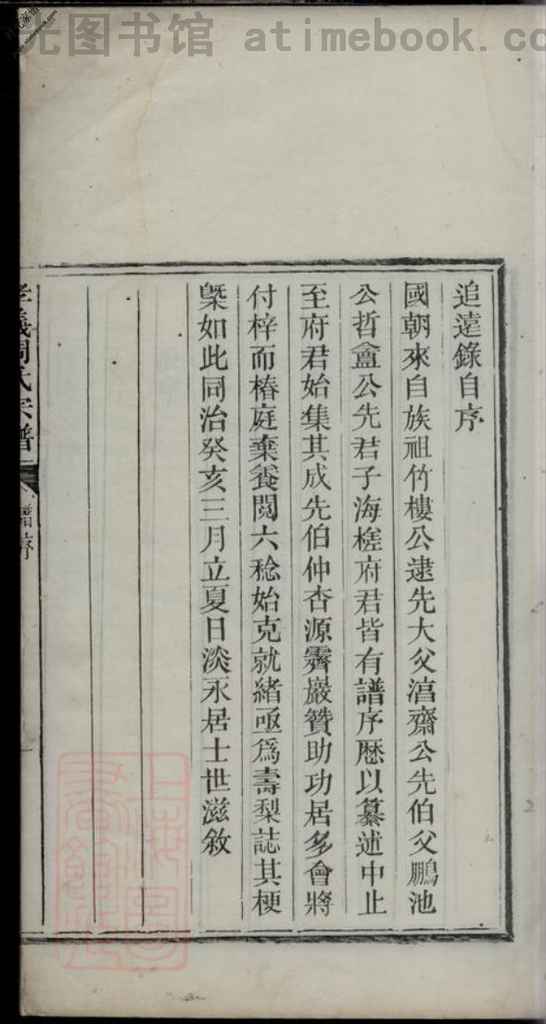 光图书馆 atimebook.co
追遠錄自序
國朝來自族祖竹樓公逮先大父湻齋公先伯父鵬池
公哲盦公先君子海槎府君皆有譜序歷以纂述中止
至府君始集其成先伯仲杏源霽巖贊助功居多會將
付梓而椿庭棄養閱六稔始克就緒亟爲壽梨誌其梗
槩如此同治癸亥三月立夏日淡永居士世滋敘
孝義周氏宗譜